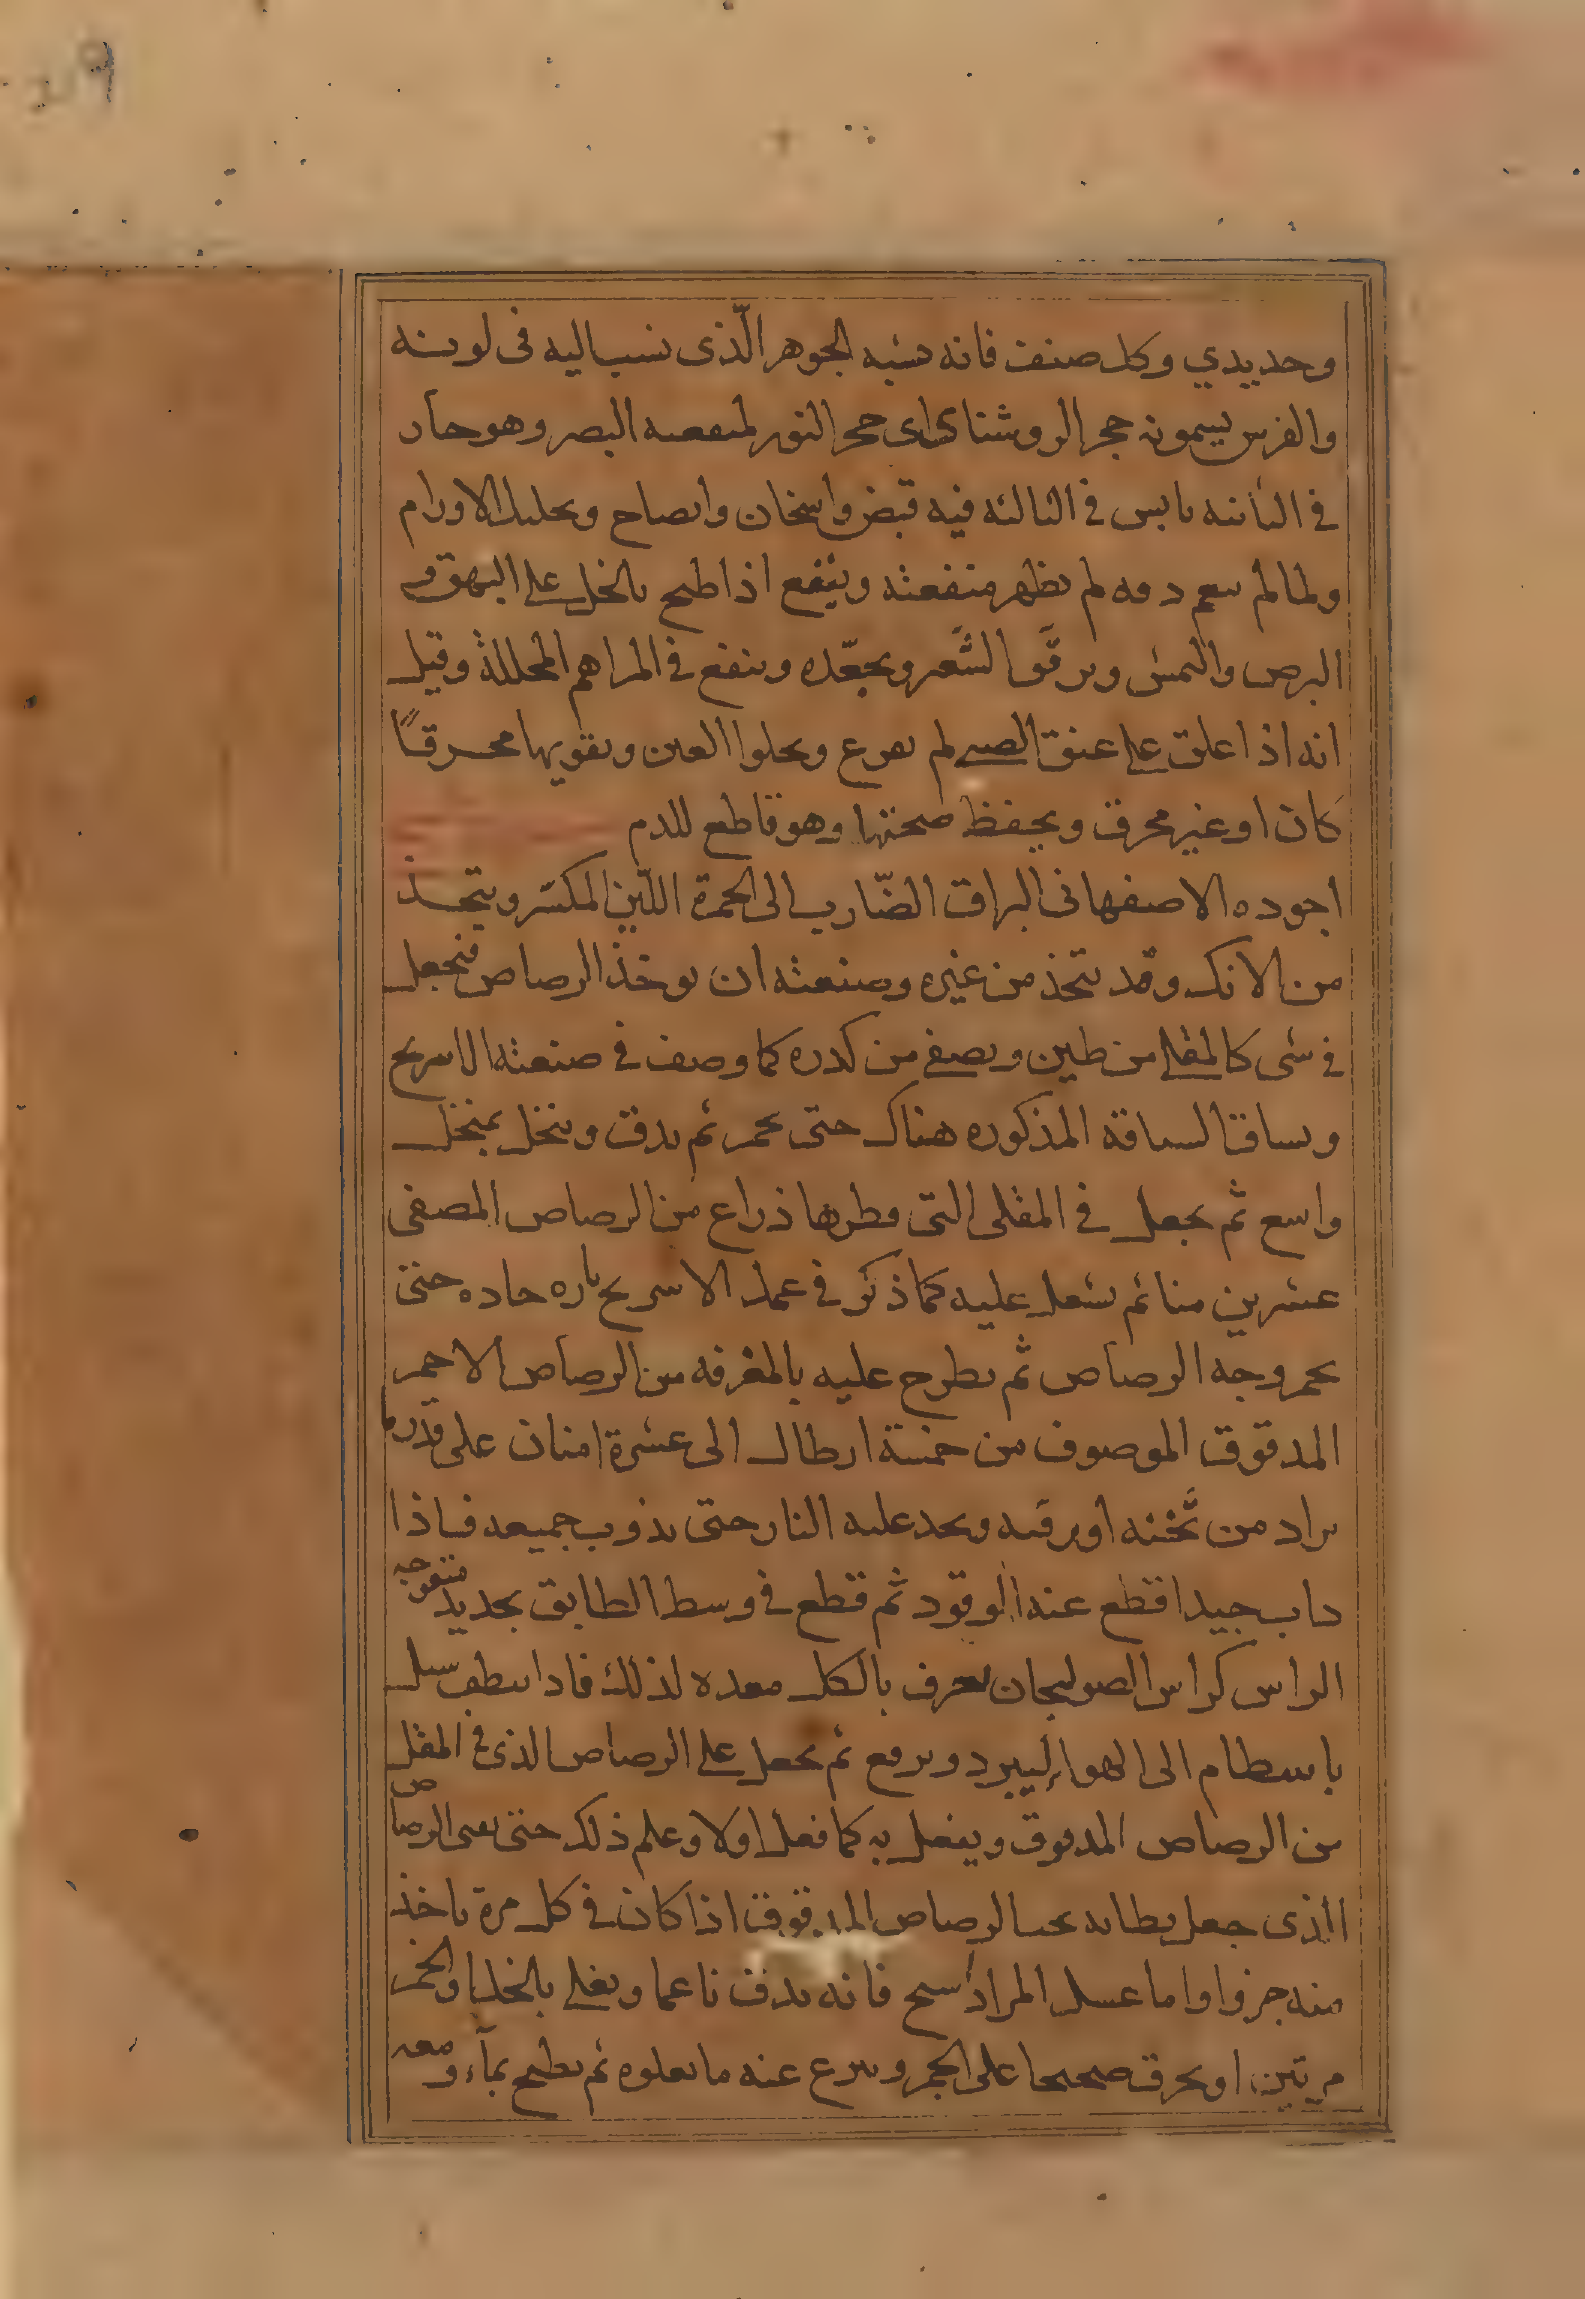 وحديدي وكل صنف فانه يشبه الجوهر الّذى نسب اليه فى لونه
والفرس يسمونه حجر الروشناى اى حجر النور لمنفعته البصر وهو حآر
في الثانيه يابس في الثالثه فيه قبض واسخان وانضاج وتحليل الاورام
ولما لم ينعم دقه لم يظهر منفعته وينفع اذا طبخ بالخل على البهق و
البرص والنمش ويرقّق الشَّعر ويجعّده وينفع في المراهم المحللة وقيل
انه اذا علق على عنق الصبى لم يفزع ويجلوا العين ويقويها محرقًا
كان او غير محرق ويحفظ صحتها وهو قاطع للدم
اجوده الاصفهانى البراق الضّارب الى الحمرة اللّين المكسر ويتخذ
من الانك وقد يتخذ من غيره وصنعته ان يوخذ الرصاص فيجعل
في شى كالمقلى من طين ويصفى من كدره كما وصف في صنعته الاسرنج
ويساق السياقة المذكوره هناك حتى يحمر ثم يدق وينخل بمنخل
واسع ثم يجعل في المقلى التى قطرها ذراع من الرصاص المصفى
عشرين منا ثم يشعل عليه كما ذكر في عمل الاسرنج ناره حاده حتى
يحمر وجه الرصاص ثم يطرح عليه بالمغرفه من الرصاص الاحمر
المدقوق الموصوف من خمسة ارطال الى عشرة امنان على قدر ما
يراد من ثخنه او رقته ويحد عليه النار حتى يذوب جميعه فاذا
داب جيدا قطع عنه الوقود ثم قطع في وسط الطابق بحديد متعوجه
الراس كراس الصولجان تعرف بالكل معده لذلك فاذا سيل
باسطام الى الهواء ليبرد ويرفع ثم يجعل على الرصاص الذى في المقلى
من الرصاص المدقوق ويفعل به كما فعل اولا وعلم ذلك حتى يفنى الرصاص
الذى جعل بطانه تحت الرصاص المدقوق اذا كان في كل مرة ياخذ
منه جزوا واما غسل المرداسنج فانه يدق ناعما ويغلى بالخل او الخمر
مرتين او يحرق صحيحا على الجمر وينزع عنه ما يعلوه ثم يطبخ بمآء ومعه